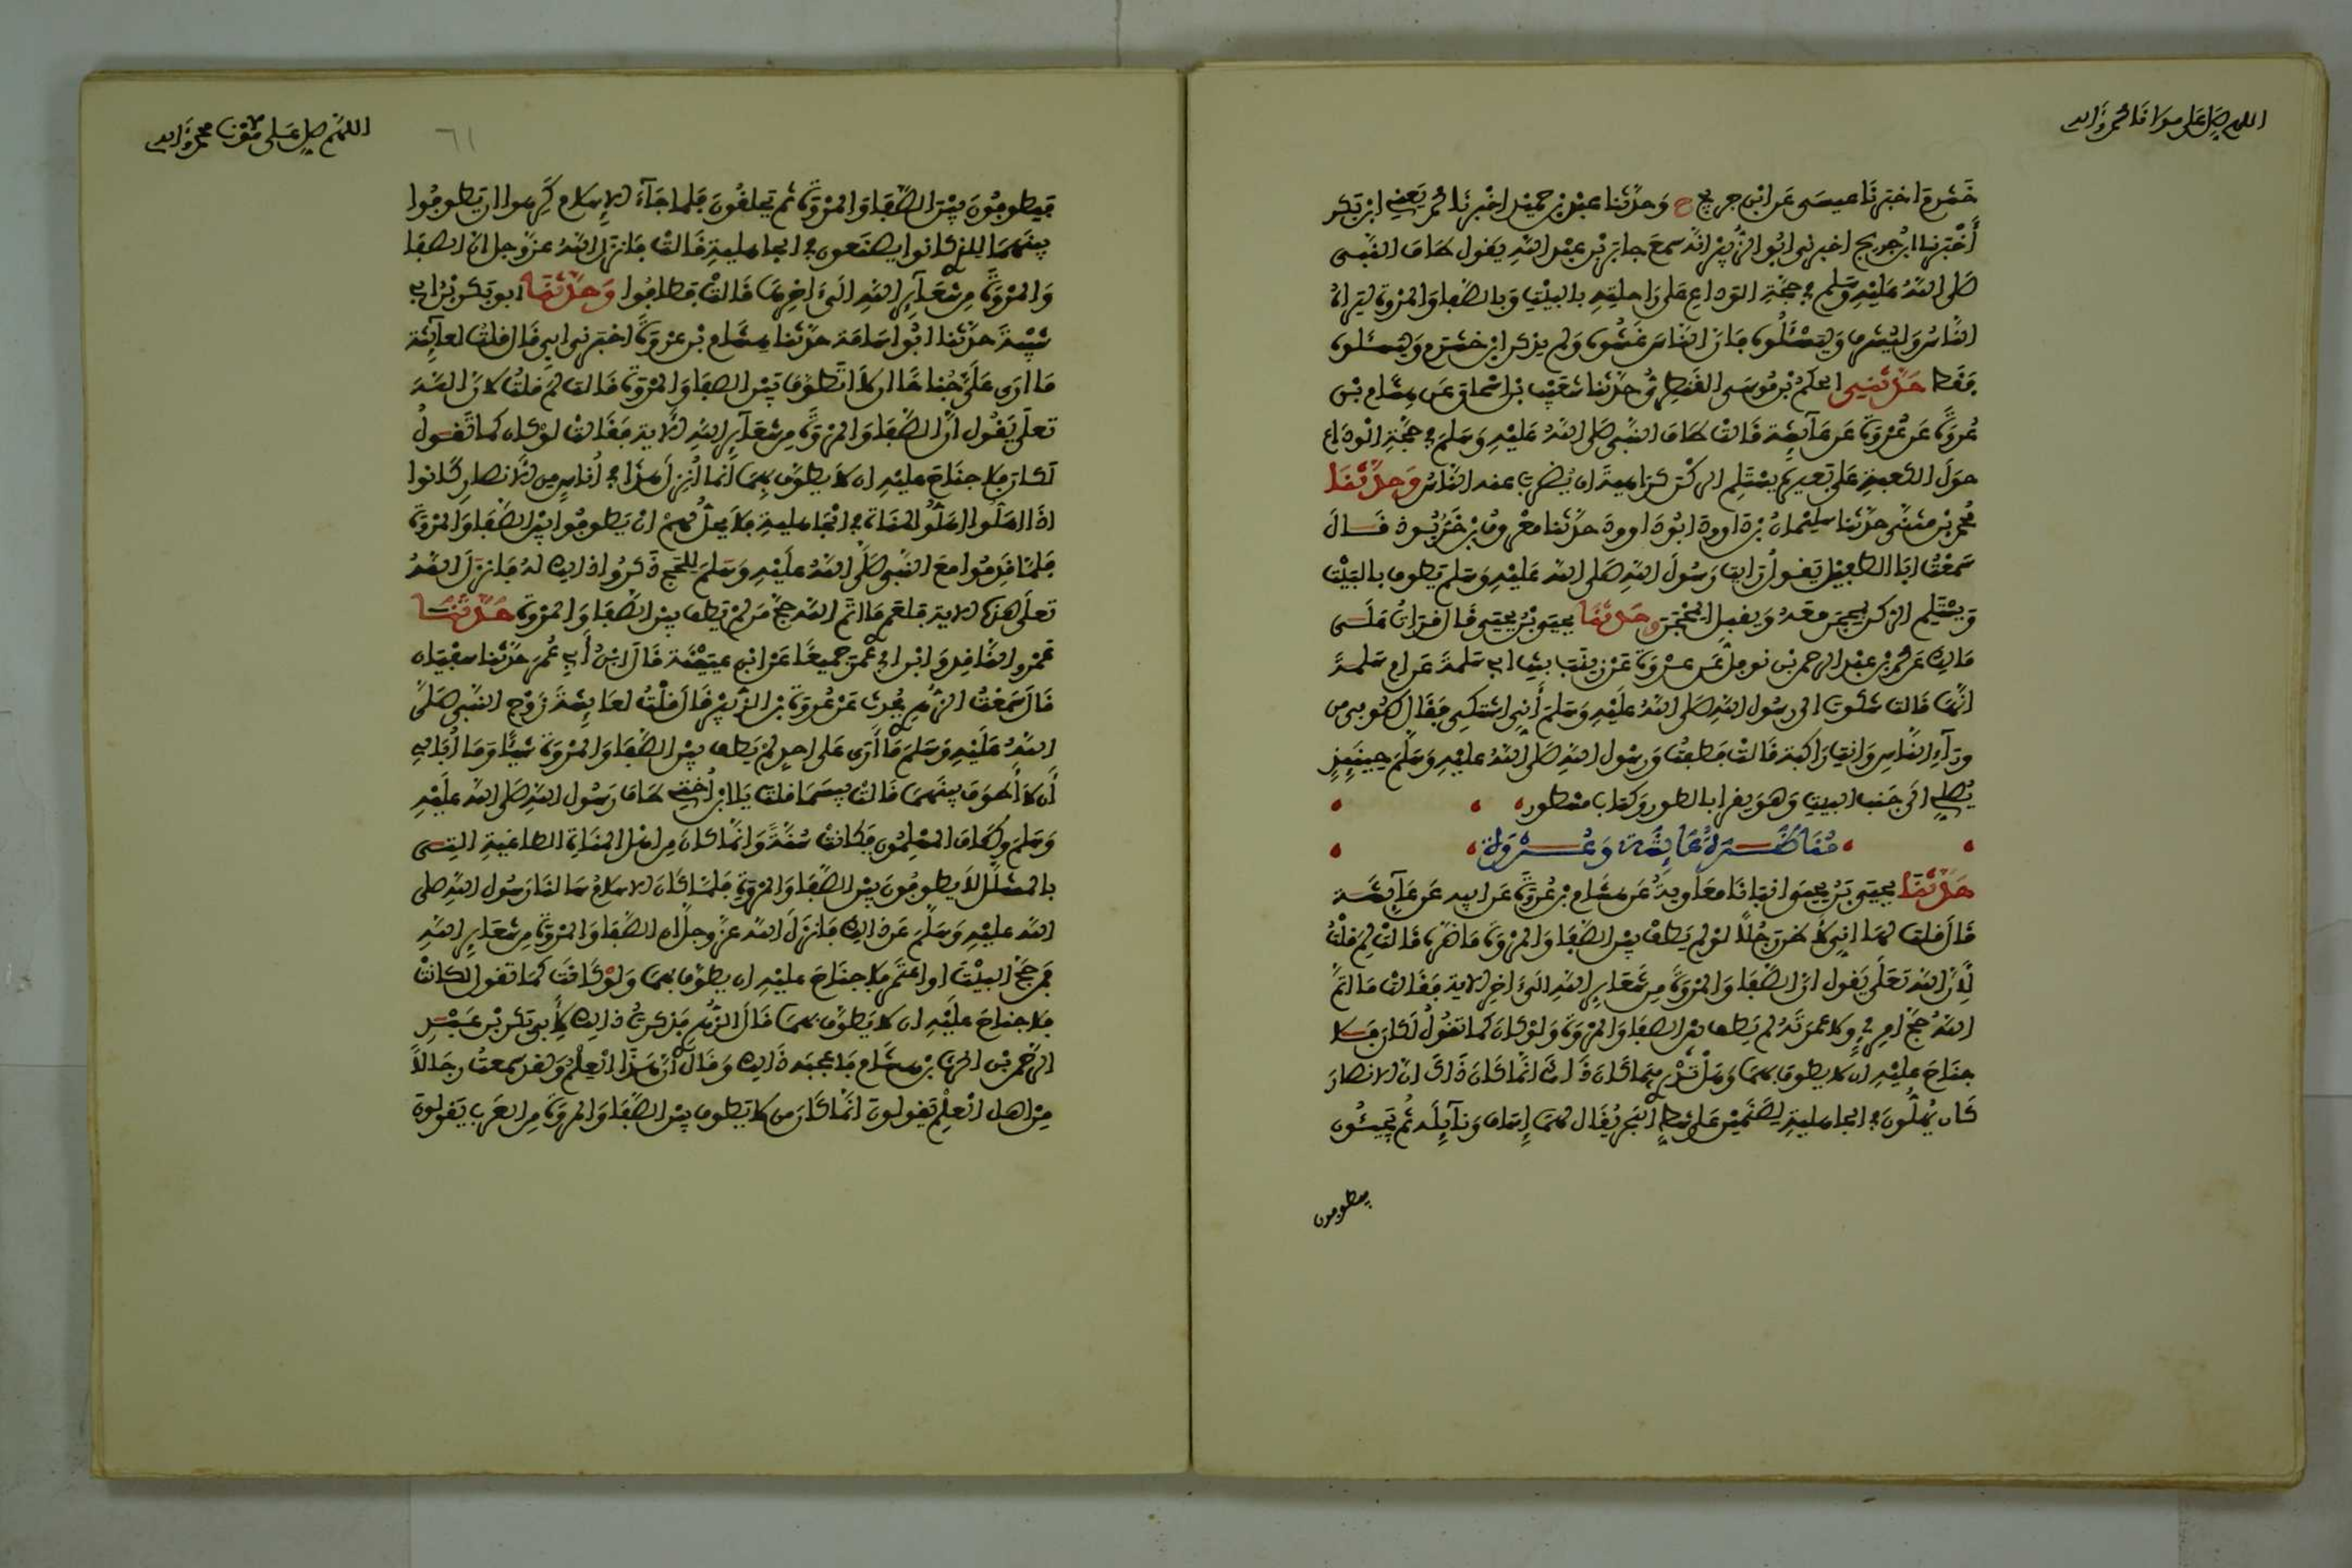 اللهم صل على مولانا محمد وآله
خشرم اخبرنا عيسى عن ابن جريج ح وحدثنا عبد بن حميد اخبرنا محمد يعني ابن بكر
أخبرنا ابن جريج اخبرني ابو الزبير انه سمع جابر بن عبد الله يقول طاف النبي
صلى الله عليه وسلم في حجة الوداع على راحلته بالبيت وبالصفا والمروة ليراه
الناس وليشرف وليسئلوه فإن الناس غشوه ولم يذكر ابن خشرم وليسئلوه
فقط حدثني الحكم بن موسى القنطري حدثنا شعيب بن اسحاق عن هشام بن
عروة عن عروة عن عائشة قالت طاف النبي صلى الله عليه وسلم في حجة الوداع
حول الكعبة على بعير يستلم الركن كراهية ان يضرب عنه الناس وحدثنا
محمد بن مثنى حدثنا سليمان بن داوود ابو داوود حدثنا معروف بن خربوذ قال
سمعت ابا الطفيل يقول رايت رسول الله صلى الله عليه وسلم يطوف بالبيت
ويستلم الركن بمحجن معه ويقبل المحجن وحدثنا يحيى بن يحيى قال قرات على
مالك عن محمد بن عبد الرحمن بن نوفل عن عروة عن زينب بنت ابي سلمة عن ام سلمة
انها قالت شكوت الى رسول الله صلى الله عليه وسلم أني اشتكي فقال طوفي من
وراء الناس وانت راكبة قالت فطفت ورسول الله صلى الله عليه وسلم حينئذ
يصلي الى جنب البيت وهو يقرا بالطور وكتاب مسطور
مناظرة عائشة وعروة
حدثنا يحيى بن يحيى انبانا معاوية عن هشام بن عروة عن ابيه عن عائشة
قال قلت لها اني لاظن رجلا لو لم يطف بين الصفا والمروة ما ضره قالت لم قلت
لأن الله تعلى يقول ان الصفا والمروة من شعاير الله الى اخر الاية فقالت ما اتم
الله حج امرئ ولا عمرته لم يطف بين الصفا والمروة ولو كان كما تقول لكان فلا
جناح عليه ان لا يطوف بهما وهل تدري فيما كان ذاك انما كان ذاك ان الانصار
كان يهلون في الجاهلية لصنمين على شط البحر يقال لهما إساف ونائلة ثم يجيئون
فيطوفون
اللهم صل على مولانا محمد وآله
٦١
فيطوفون بين الصفا والمروة ثم يحلقون فلما جاء الإسلام كرهوا ان يطوفوا
بينهما للذي كانوا يصنعون في الجاهلية قالت فانزل الله عز وجل ان الصفا
والمروة من شعاير الله الى اخرها قالت فطافوا وحدثنا ابو بكر بن ابي
شيبة حدثنا ابو اسامة حدثنا هشام بن عروة اخبرني ابي قال قلت لعائشة
ما ارى علي جناحا ان لا اتطوف بين الصفا والمروة قالت لم قلت لان الله
تعلى يقول ان الصفا والمروة من شعاير الله الاية فقالت لو كان كما تقول
لكان فلا جناح عليه ان لا يطوف بهما انما أنزل هذا في أناس من الانصار كانوا
اذا اهلوا اهلوا لمناة في الجاهلية فلا يحل لهم ان يطوفوا بين الصفا والمروة
فلما قدموا مع النبي صلى الله عليه وسلم للحج ذكروا ذلك له فانزل الله
تعلى هذه الاية فلعمري ما اتم الله حج من لم يطف بين الصفا والمروة حدثنا
عمرو الناقد وابن ابي عمر جميعا عن ابن عيينة قال ابن أبي عمر حدثنا سفيان
قال سمعت الزهري يحدث عن عروة بن الزبير قال قلت لعائشة زوج النبي صلى
الله عليه وسلم ما أرى على احد لم يطف بين الصفا والمروة شيئا وما أبالي
أن لا أطوف بينهما قالت بيسما قلت يا ابن أختي طاف رسول الله صلى الله عليه
وسلم وطاف المسلمون فكانت سنة وانما كان من اهل لمناة الطاغية التي
بالمشلل لا يطوفون بين الصفا والمروة فلما كان الاسلام سالنا رسول الله صلى
الله عليه وسلم عن ذلك فانزل الله عز وجل ان الصفا والمروة من شعاير الله
فمن حج البيت او اعتمر فلا جناح عليه ان يطوف بهما ولو كانت كما تقول لكانت
فلا جناح عليه ان لا يطوف بهما قال الزهري فذكرت ذلك لأبي بكر بن عبد
الرحمن بن الحرث بن هشام فاعجبه ذلك وقال ان هذا العلم ولقد سمعت رجالا
من اهل العلم يقولون انما كان من لا يطوف بين الصفا والمروة من العرب يقولون